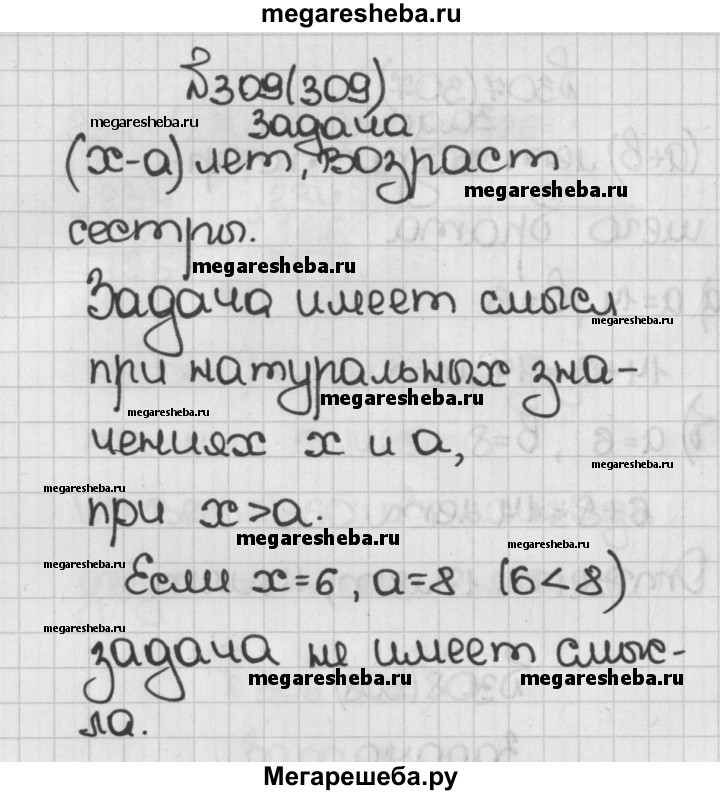 megaresheba.ru
№309(309)
megaresheba.ru
задача
(x-a) лет, возраст
megaresheba.ru
сестры.
megaresheba.ru
Задача имеет смысл
megaresheba.ru
при натуральных зна-
megaresheba.ru
megaresheba.ru
чениях x и a,
megaresheba.ru
megaresheba.ru
при x>a.
megaresheba.ru
megaresheba.ru
megaresheba.ru
Если x=6, a=8 (6<8)
megaresheba.ru
задача не имеет смыс-
megaresheba.ru megaresheba.ru
ла.
megaresheba.ru
Мегарешеба.ру